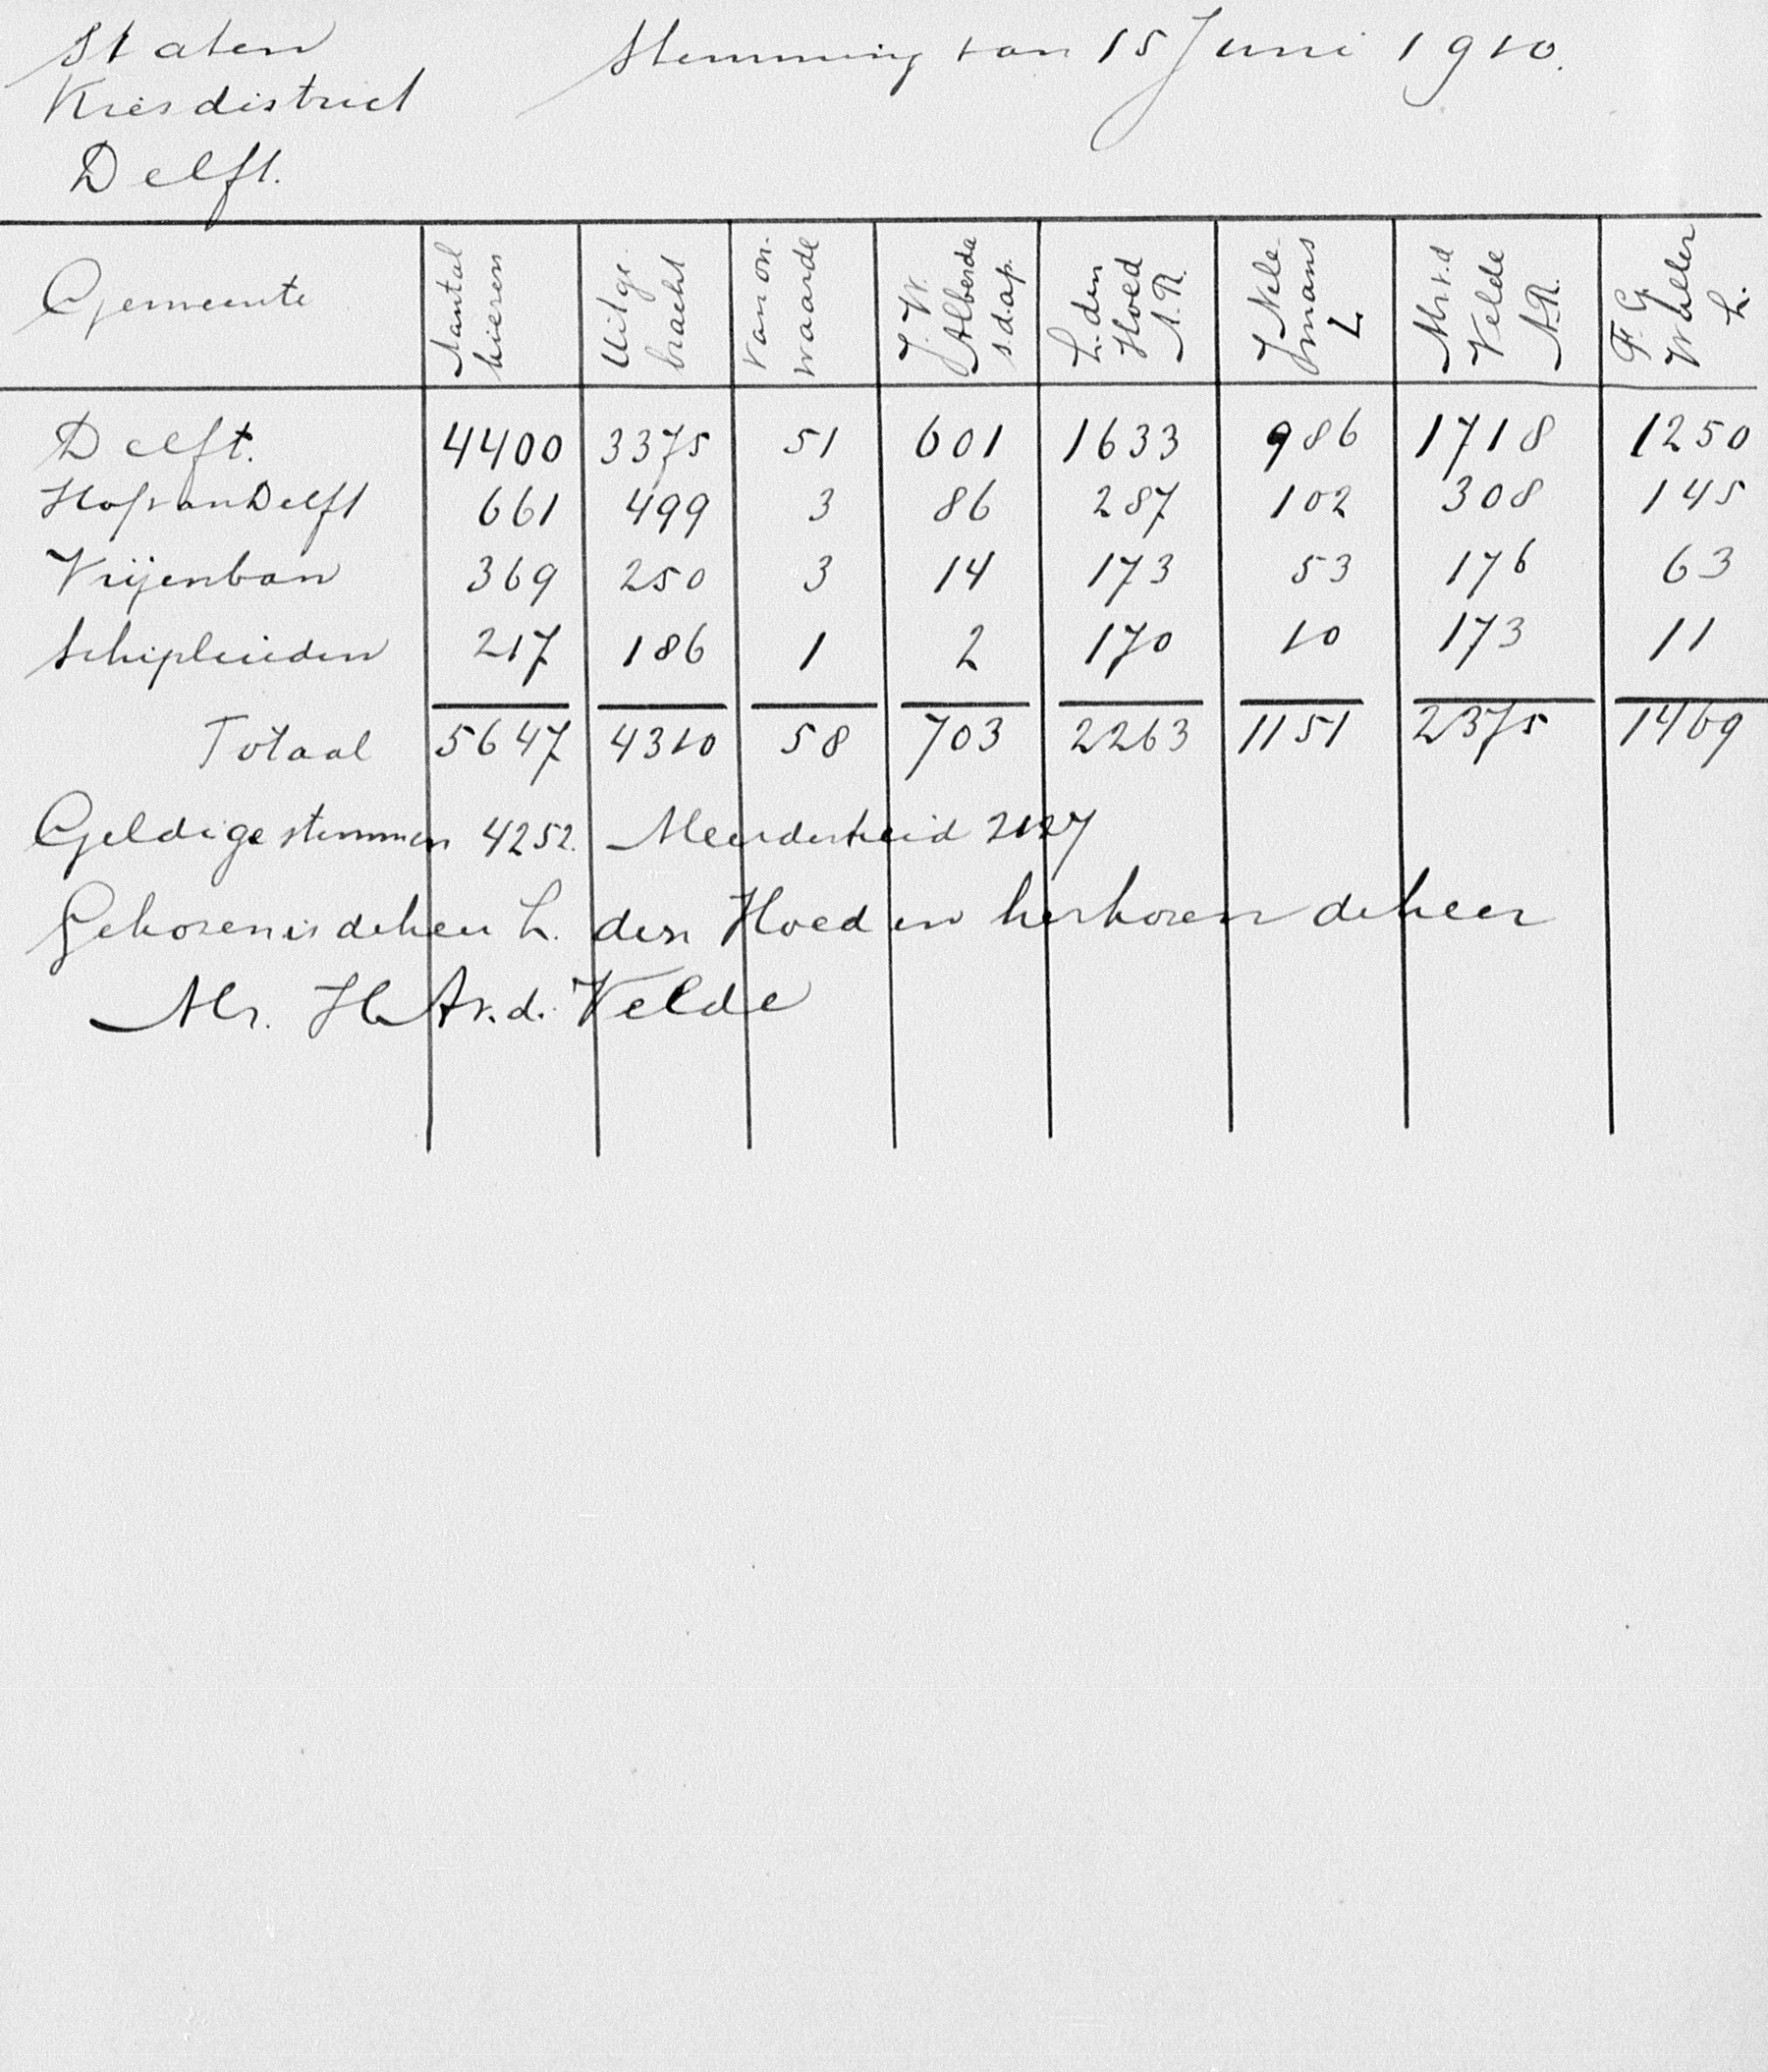 Staten Stemming van 15 Juni 1910.
Kiesdistrict
Delft.
Gemeente Aantal kiezers Uitge. bracht Van on. waarde J. W. Alberda s.d.a.p. L. den Hoed A.R. J Nele mans L Mr. v.d Velde A.R. F. G. Waller L.
Delft. 4400 3375 51 601 1633 986 1718 1250
Hof van Delft 661 499 3 86 287 102 308 145
Vrijenban 369 250 3 14 173 53 176 63
Schipluiden 217 186 1 2 170 10 173 11
Totaal 5647 4310 58 703 2263 1151 2375 1469
Geldige stemmen 4252. Meerderheid 2127
Gekozen is de heer L. den Hoed en herkozen de heer
Mr. H A v. d. Velde